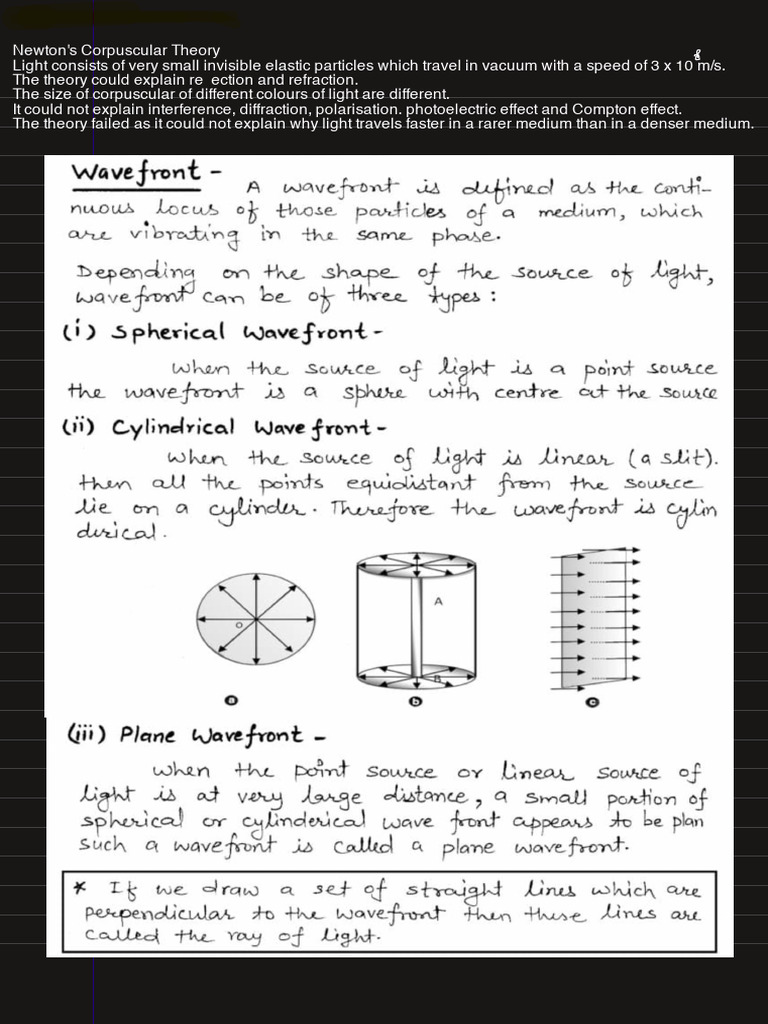 Newton's Corpuscular Theory
Light consists of very small invisible elastic particles which travel in vacuum with a speed of 3 x 10⁸ m/s.
The theory could explain re ection and refraction.
The size of corpuscular of different colours of light are different.
It could not explain interference, diffraction, polarisation. photoelectric effect and Compton effect.
The theory failed as it could not explain why light travels faster in a rarer medium than in a denser medium.
Wavefront -
A wavefront is defined as the conti-
nuous locus of those particles of a medium, which
are vibrating in the same phase.
Depending on the shape of the source of light,
wavefront can be of three types:
(i) Spherical Wavefront -
When the source of light is a point source
the wavefront is a sphere with centre at the source
(ii) Cylindrical Wavefront -
When the source of light is linear (a slit).
then all the points equidistant from the source
lie on a cylinder. Therefore the wavefront is cylin
derical.
O
A
B
a b c
(iii) Plane Wavefront -
When the point source or linear source of
light is at very large distance, a small portion of
spherical or cylinderical wave front appears to be plan
such a wavefront is called a plane wavefront.
* If we draw a set of straight lines which are
perpendicular to the wavefront then these lines are
called the ray of light.